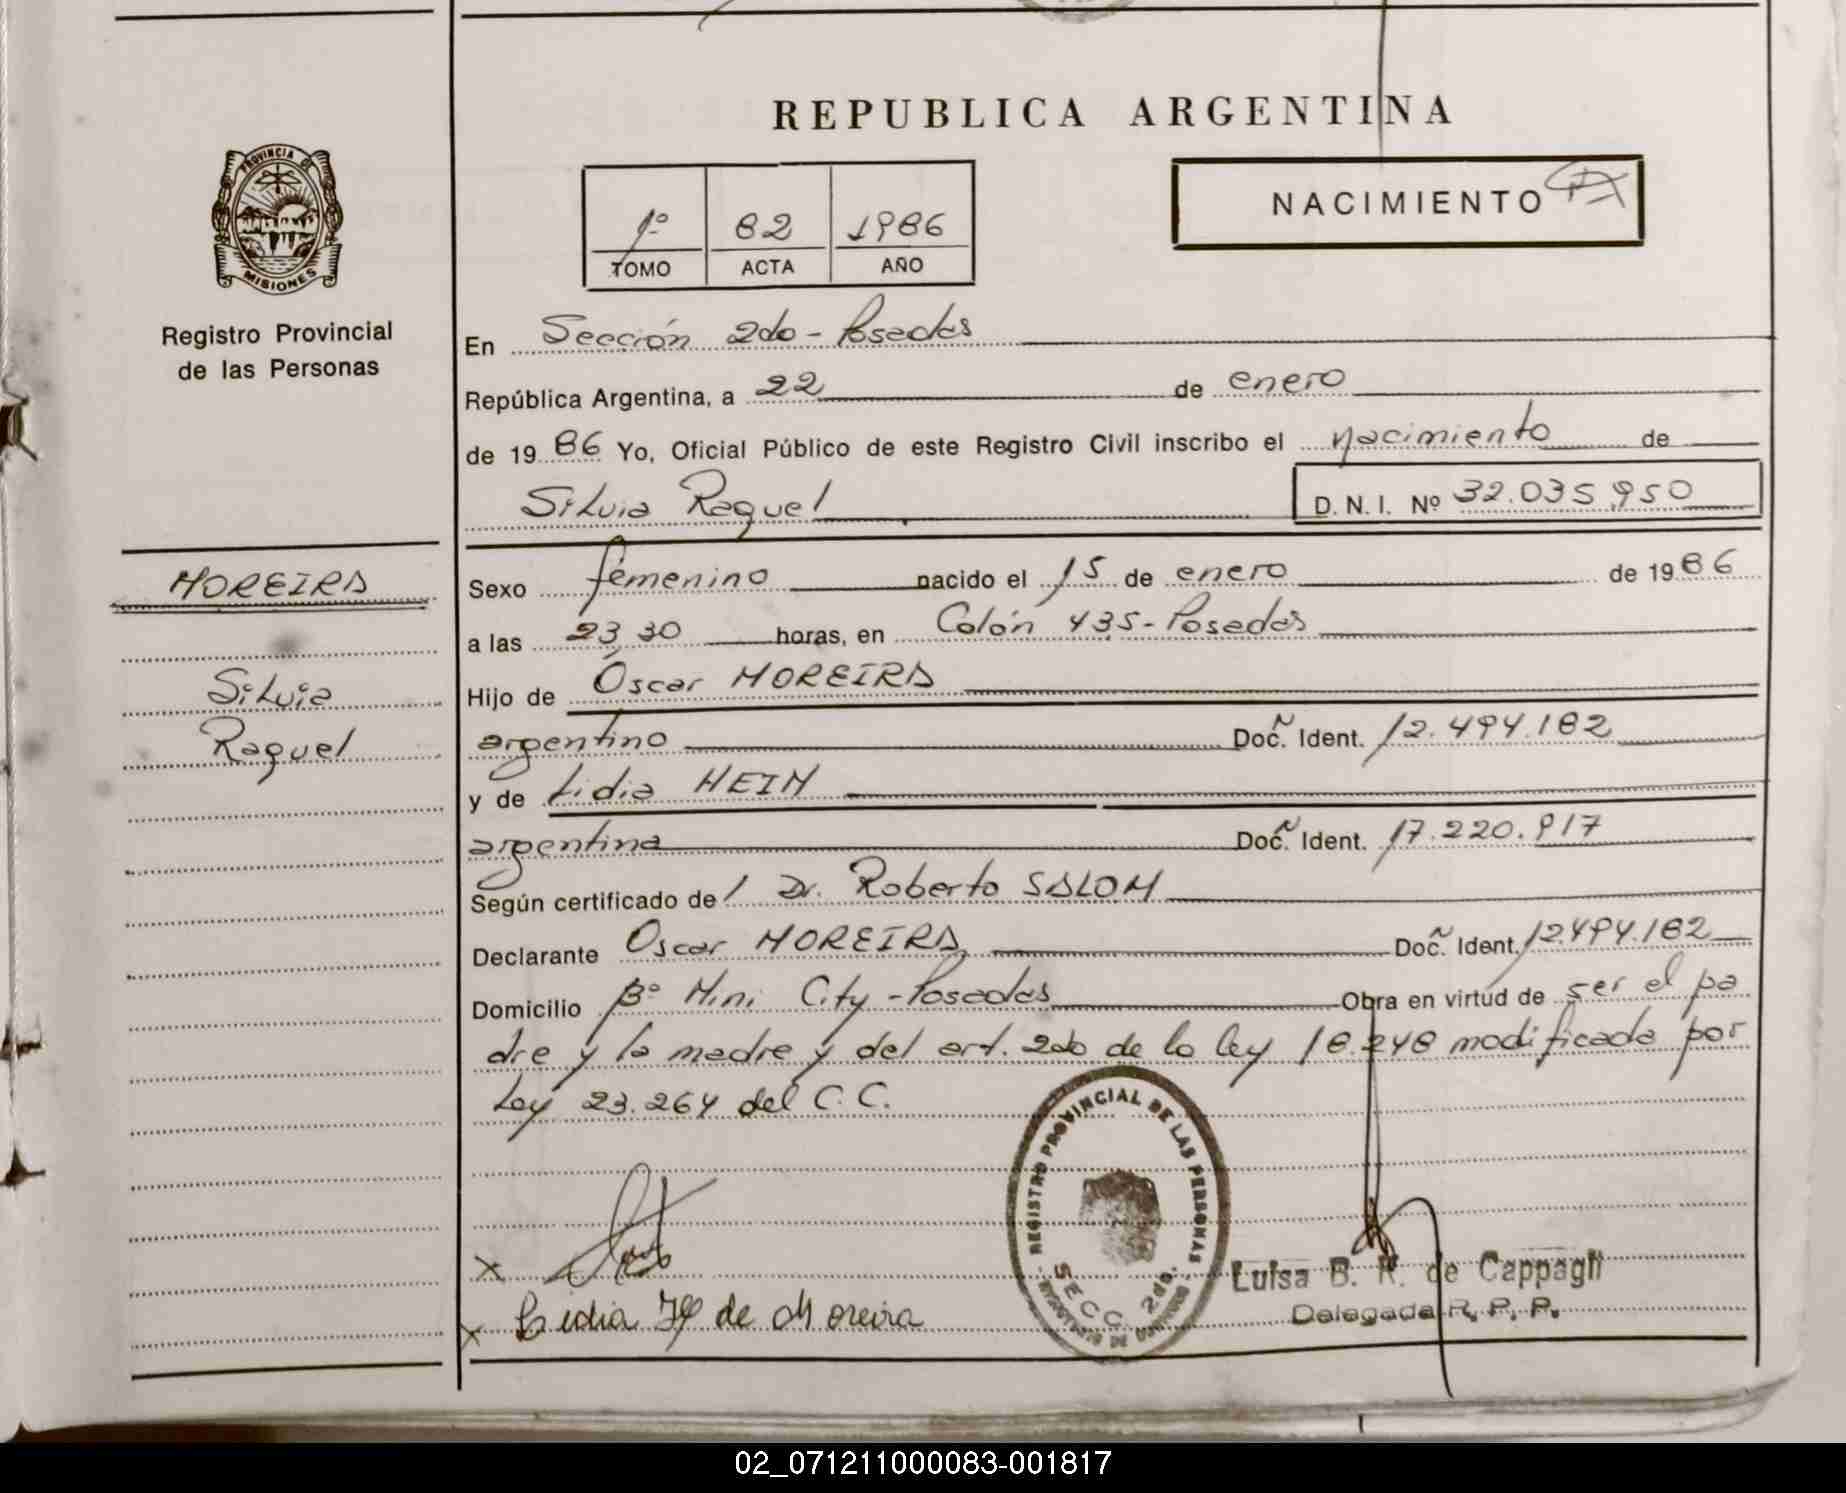 REPUBLICA ARGENTINA
PROVINCIA DE
MISIONES
Registro Provincial
de las Personas
1º 82 1986
TOMO ACTA AÑO
NACIMIENTO
En Sección 2da - Posadas
República Argentina, a 22 de enero
de 1986 Yo, Oficial Público de este Registro Civil inscribo el nacimiento de
Silvia Raquel D. N. I. Nº 32.035.950
MOREIRA
Silvia
Raquel
Sexo femenino nacido el 15 de enero de 1986
a las 23,30 horas, en Colón 435 - Posadas
Hijo de Oscar MOREIRA
argentino Doc. Ident. 12.494.182
y de Lidia HEIN
argentina Doc. Ident. 17.220.917
Según certificado de l Dr. Roberto SALOM
Declarante Oscar MOREIRA Doc. Ident. 12.494.182
Domicilio Bº Mini City - Posadas Obra en virtud de ser el pa
dre y la madre y del art. 2do de la ley 18.248 modificada por
Ley 23.264 del C. C.
REGISTRO PROVINCIAL DE LAS PERSONAS
SECC. 2da.
Luisa B. R. de Cappagli
Delegada R. P. P.
x
x Lidia H de Moreira
02_071211000083-001817